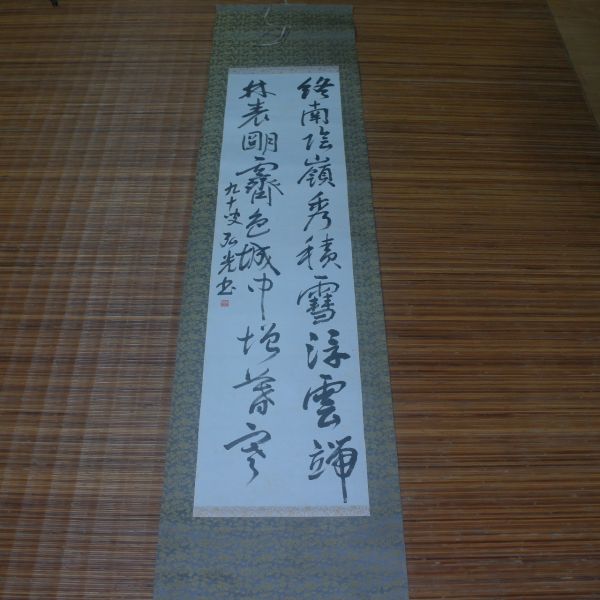 終南陰嶺秀積雪浮雲端
林表明霽色城中増暮寒
九十叟弘光書